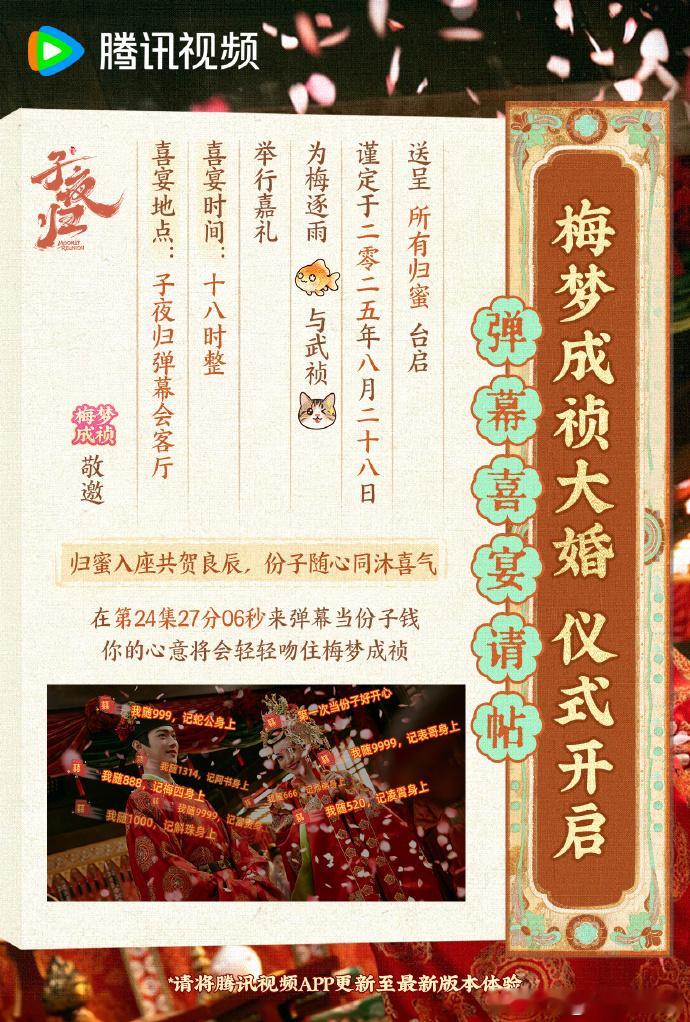 腾讯视频
梅梦成祯大婚 仪式开启
弹幕喜宴请帖
子夜归
MOONLIT REUNION
送呈 所有归蜜 台启
谨定于二零二五年八月二十八日
为梅逐雨 与武祯
举行嘉礼
喜宴时间：十八时整
喜宴地点：子夜归弹幕会客厅
梅梦成祯 敬邀
归蜜入座共贺良辰，份子随心同沐喜气
在第24集27分06秒来弹幕当份子钱
你的心意将会轻轻吻住梅梦成祯
我随999，记蛇公身上
第一次当份子好开心
我随9999，记表哥身上
我随1314，记阿书身上
我随888，记梅四身上
我随520，记凌霄身上
我随1000，记斛珠身上
*请将腾讯视频APP更新至最新版本体验